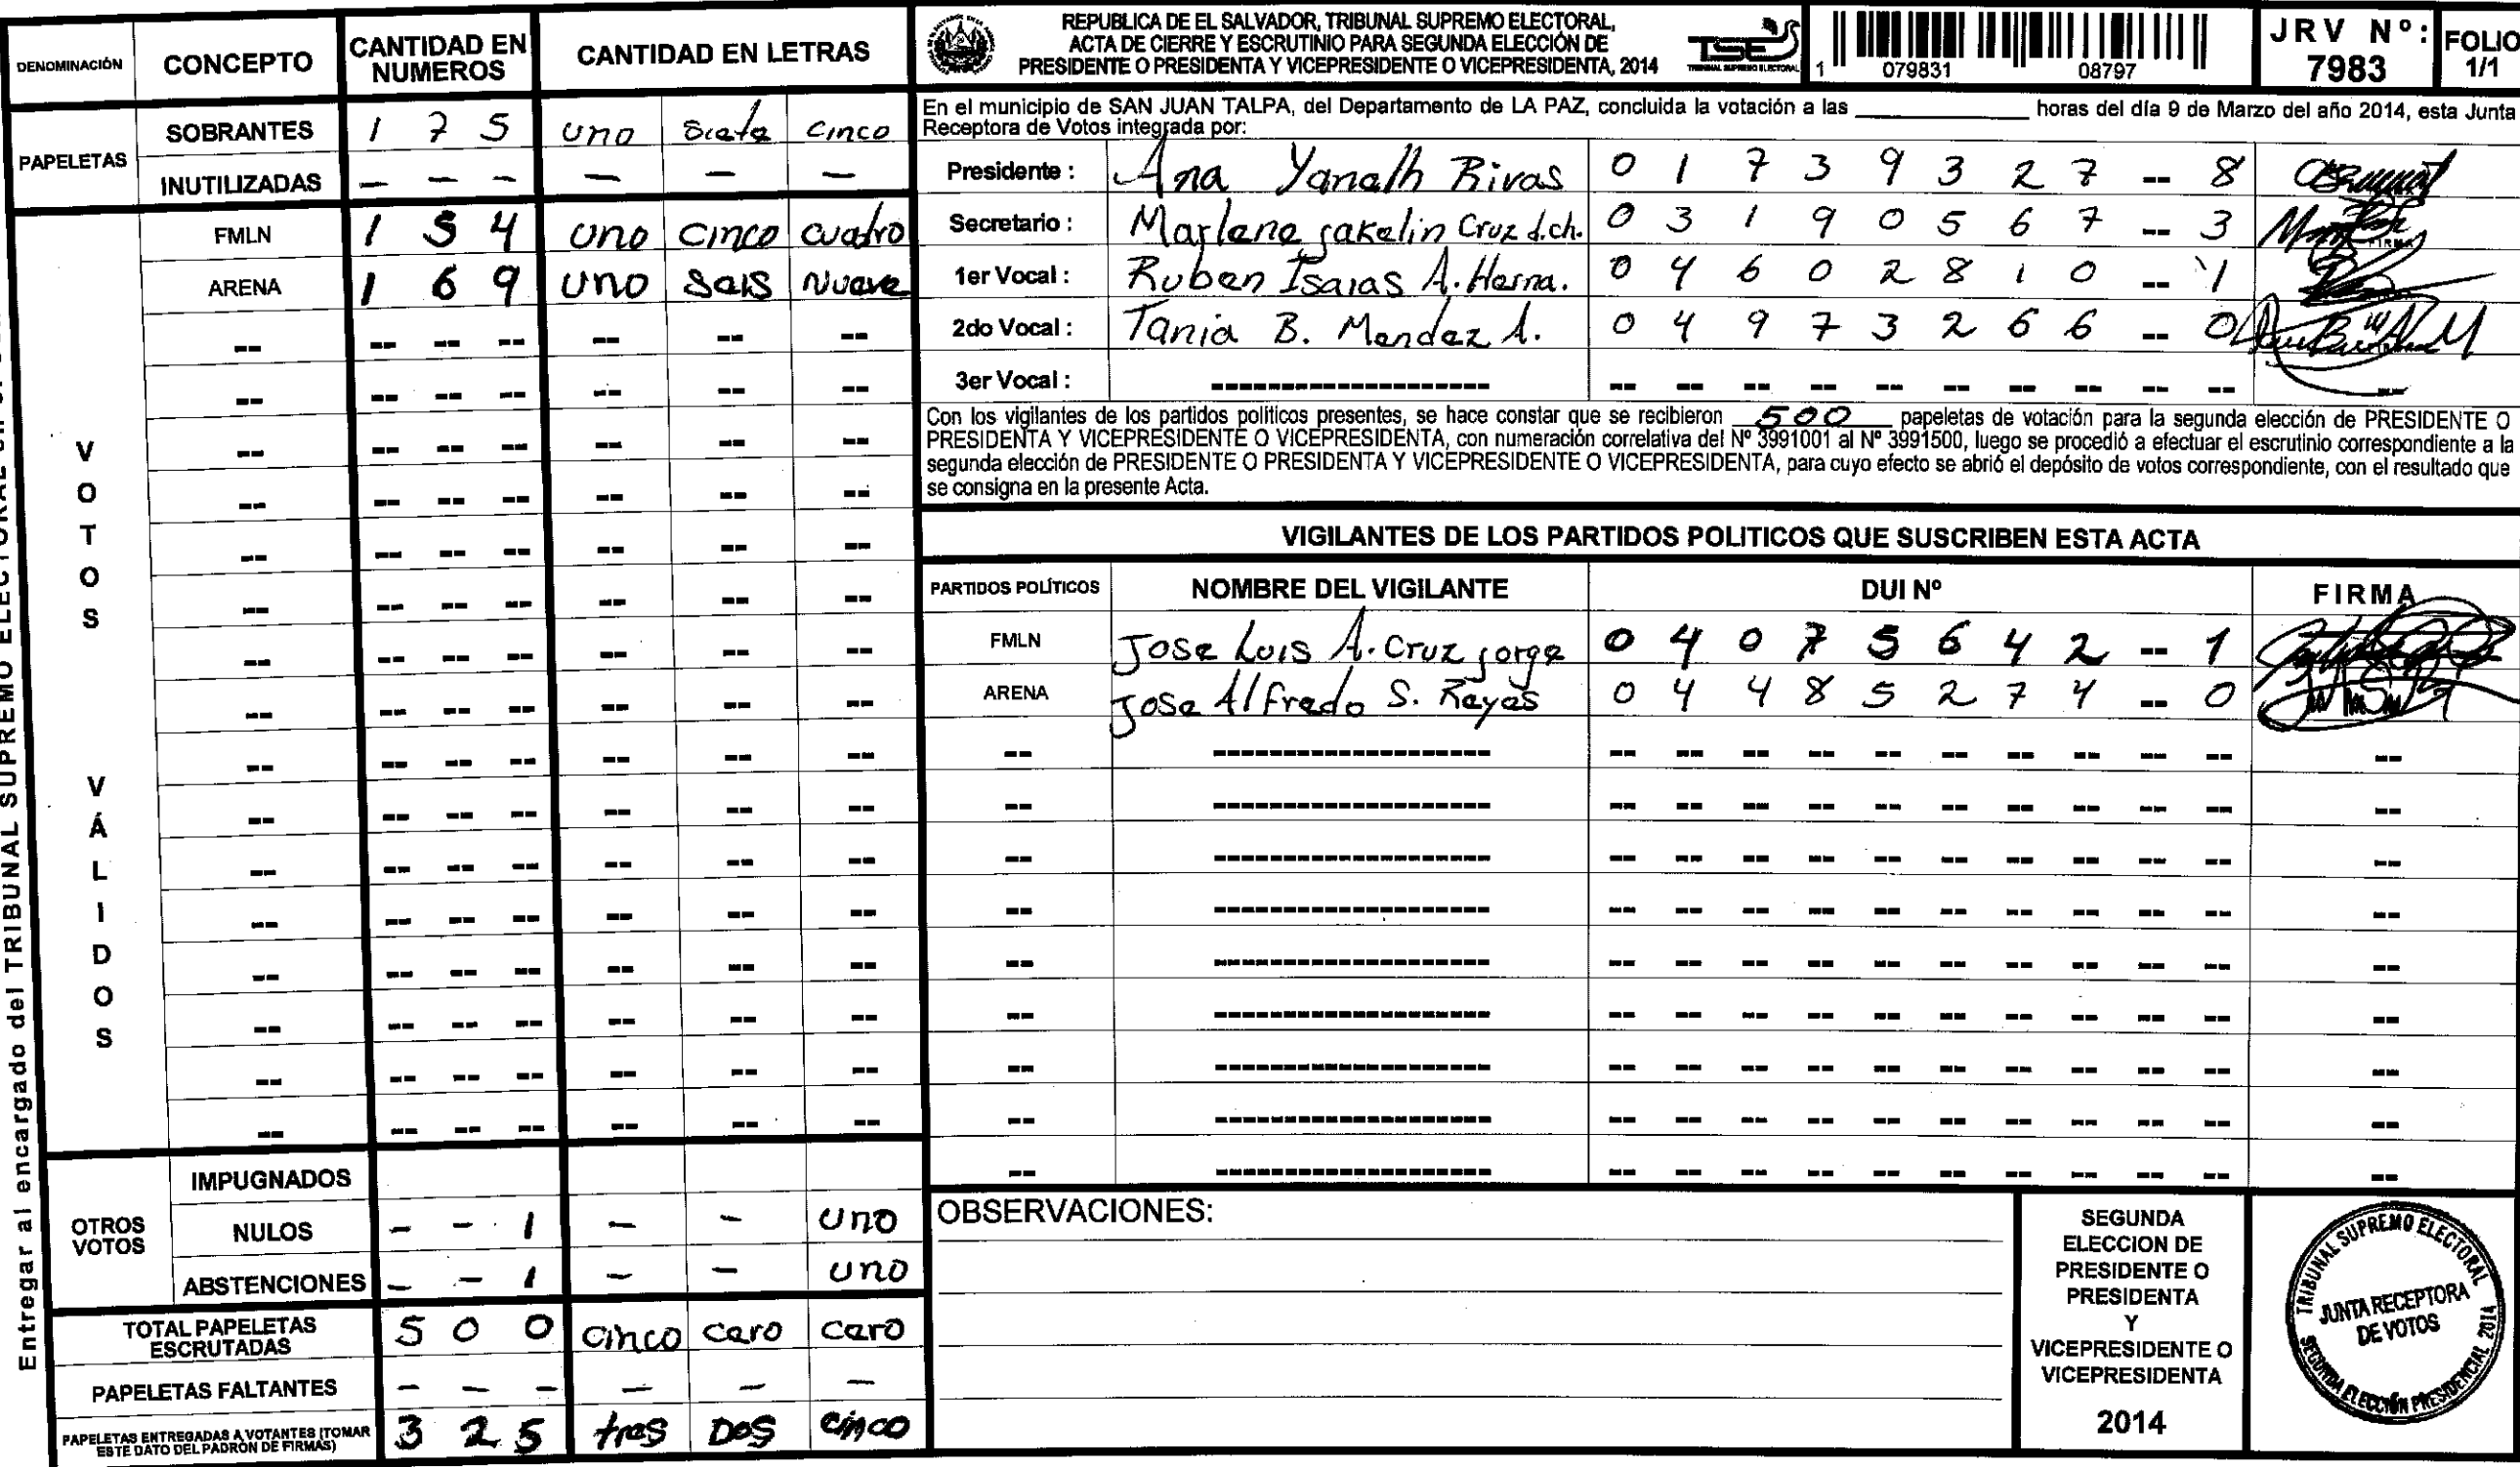 DENOMINACIÓN CONCEPTO CANTIDAD EN NUMEROS CANTIDAD EN LETRAS
PAPELETAS
SOBRANTES 1 7 5 uno Siete cinco
INUTILIZADAS — — — — — —
VOTOS VÁLIDOS
FMLN 1 5 4 uno cinco cuatro
ARENA 1 6 9 uno seis Nueve
OTROS VOTOS
IMPUGNADOS
NULOS - - 1 - - uno
ABSTENCIONES - - 1 - - uno
TOTAL PAPELETAS ESCRUTADAS 5 0 0 cinco cero cero
PAPELETAS FALTANTES - - - - - -
PAPELETAS ENTREGADAS A VOTANTES (TOMAR ESTE DATO DEL PADRÓN DE FIRMAS) 3 2 5 tres Dos cinco
Entregar al encargado del TRIBUNAL SUPREMO ELECTORAL
REPUBLICA DE EL SALVADOR, TRIBUNAL SUPREMO ELECTORAL,
ACTA DE CIERRE Y ESCRUTINIO PARA SEGUNDA ELECCIÓN DE
PRESIDENTE O PRESIDENTA Y VICEPRESIDENTE O VICEPRESIDENTA, 2014
TSE
TRIBUNAL SUPREMO ELECTORAL
1 079831 08797
JRV Nº: 7983
FOLIO 1/1
En el municipio de SAN JUAN TALPA, del Departamento de LA PAZ, concluida la votación a las ____ horas del día 9 de Marzo del año 2014, esta Junta
Receptora de Votos integrada por:
Presidente : Ana Yaneth Rivas 0 1 7 3 9 3 2 7 -- 8
Secretario : Marlene jakelin Cruz d.ch. 0 3 1 9 0 5 6 7 -- 3
FIRMA
1er Vocal : Ruben Isaias A. Herna. 0 4 6 0 2 8 1 0 -- 1
2do Vocal : Tania B. Mendez A. 0 4 9 7 3 2 6 6 -- 0
3er Vocal :
Con los vigilantes de los partidos politicos presentes, se hace constar que se recibieron 500 papeletas de votación para la segunda elección de PRESIDENTE O
PRESIDENTA Y VICEPRESIDENTE O VICEPRESIDENTA, con numeración correlativa del Nº 3991001 al Nº 3991500, luego se procedió a efectuar el escrutinio correspondiente a la
segunda elección de PRESIDENTE O PRESIDENTA Y VICEPRESIDENTE O VICEPRESIDENTA, para cuyo efecto se abrió el depósito de votos correspondiente, con el resultado que
se consigna en la presente Acta.
VIGILANTES DE LOS PARTIDOS POLITICOS QUE SUSCRIBEN ESTA ACTA
PARTIDOS POLÍTICOS NOMBRE DEL VIGILANTE DUI Nº FIRMA
FMLN Jose Luis A. Cruz jorge 0 4 0 7 5 6 4 2 -- 1
ARENA Jose Alfredo S. Reyes 0 4 4 8 5 2 7 4 -- 0
OBSERVACIONES:
SEGUNDA
ELECCION DE
PRESIDENTE O
PRESIDENTA
Y
VICEPRESIDENTE O
VICEPRESIDENTA
2014
TRIBUNAL SUPREMO ELECTORAL
JUNTA RECEPTORA
DE VOTOS
SEGUNDA ELECCIÓN PRESIDENCIAL 2014